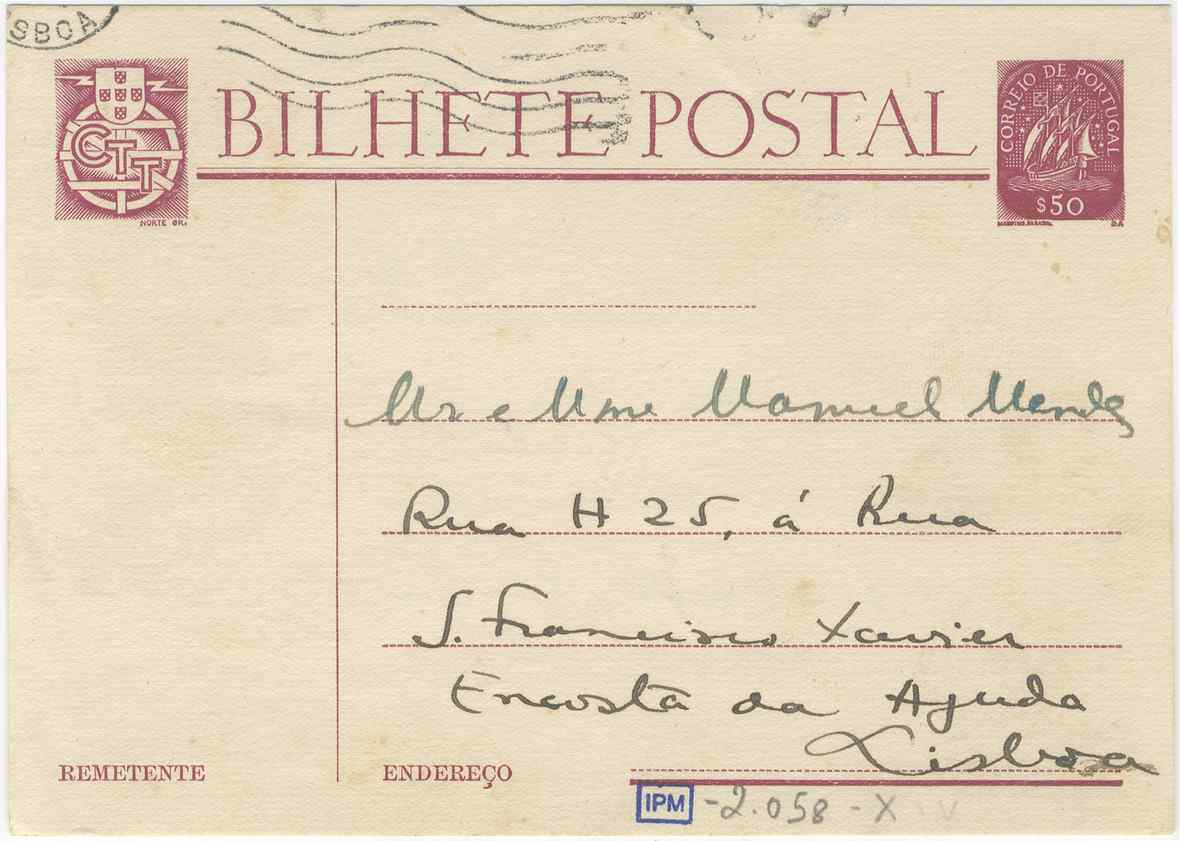 SBOA
CTT
NORTE GR.
BILHETE POSTAL
CORREIO DE PORTUGAL
$50
Mr e Mme Manuel Mendes
Rua H 25, á Rua
S. Francisco Xavier
Encosta da Ajuda
Lisboa
REMETENTE
ENDEREÇO
IPM - 2.058 - X V